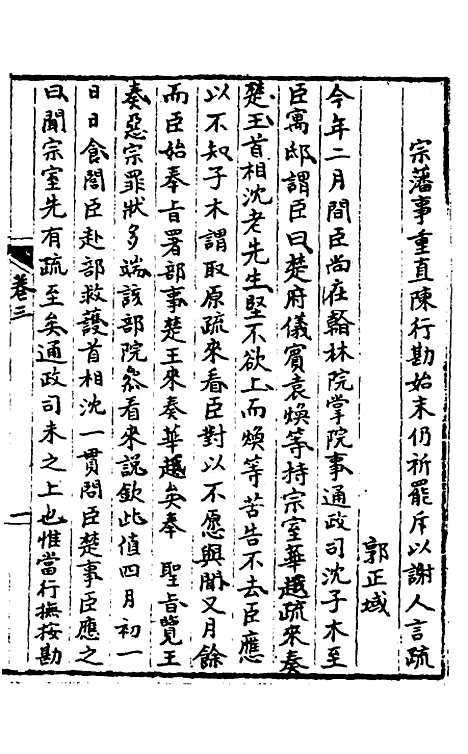 宗藩事重直陳行勘始末仍祈罷斥以謝人言疏
郭正域
今年二月間臣尚在翰林院掌院事通政司沈子木至
臣寓邸謂臣曰楚府儀賓袁煥等持宗室華趆疏來奏
楚王首相沈老先生堅不欲上而煥等苦告不去臣應
以不知子木謂取原疏來看臣對以不愿與聞又月餘
而臣始奉旨署部事楚王來奏華趆矣奉 聖旨覽王
奏惡宗罪狀多端該部院叅看來說欽此值四月初一
日日食閣臣赴部救護首相沈一貫問臣楚事臣應之
曰聞宗室先有疏至矣通政司未之上也惟當行撫按勘
卷三
一